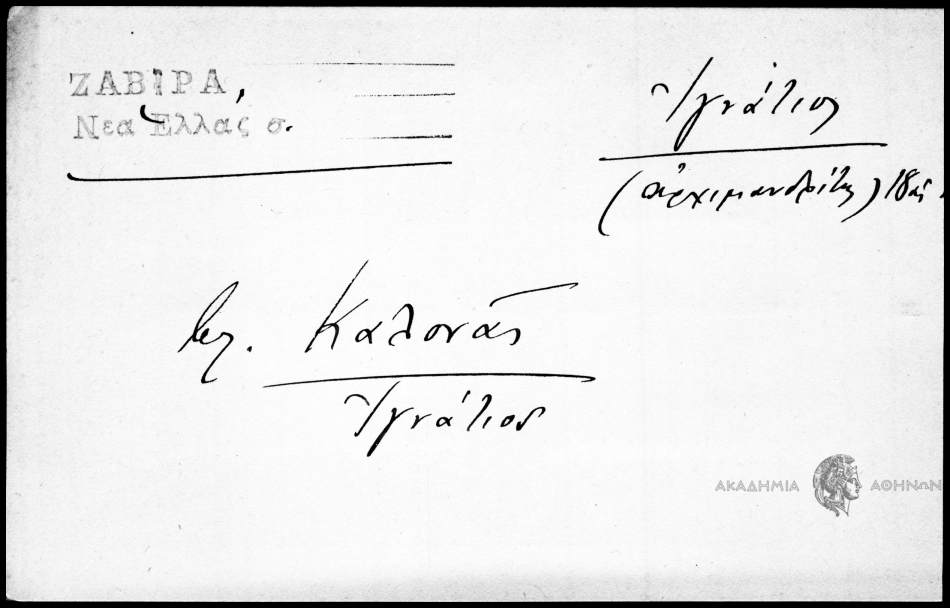 ΖΑΒΙΡΑ,
Νεα Ελλας σ.
Ἰγνάτιος
(ἀρχιμανδρίτης) 18ος
βλ. Καλονᾶς
Ἰγνάτιος
ΑΚΑΔΗΜΙΑ ΑΘΗΝΩΝ